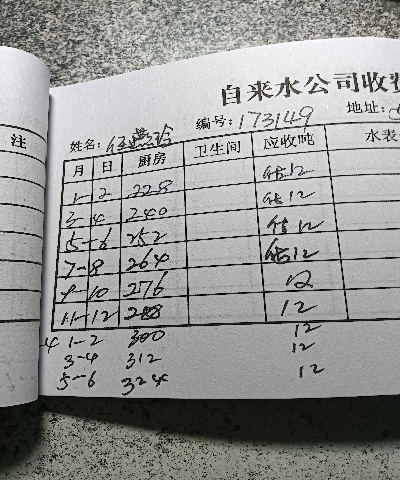 自来水公司收费
编号:173149 地址:
注 姓名:
月 日 厨房 卫生间 应收吨 水表
1-2 228 估12
3-4 240 估12
5-6 252 估12
7-8 264 估12
9-10 276 12
11-12 288 12
4 1-2 300 12
3-4 312 12
5-6 324 12